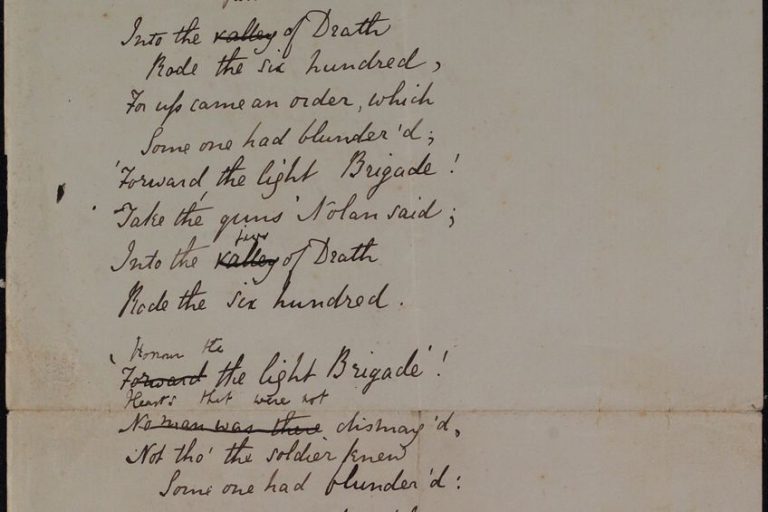 Into the valley of Death
Rode the six hundred,
For up came an order, which
Some one had blunder'd;
'Forward, the light Brigade!
Take the guns' Nolan said;
Into the valley of Death
Rode the six hundred.
Honour the
'Forward the light Brigade'!
Hearts that were not
No man was there dismay'd,
Not tho' the soldier knew
Some one had blunder'd: